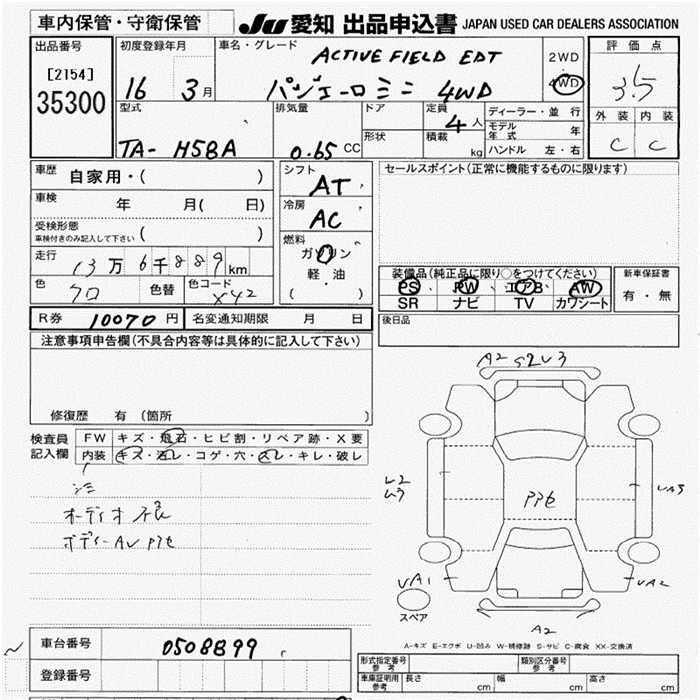 車内保管・守衛保管 JU 愛知 出品申込書 JAPAN USED CAR DEALERS ASSOCIATION
出品番号
[2154]
35300
初度登録年月
16 3月
車名・グレード
ACTIVE FIELD EDT
パジェーロミニ 4WD
2WD
4WD
評価点
3.5
外装 内装
C C
型式
TA- H58A
排気量
0.65 CC
ドア
形状
定員
4人
積載
kg
ディーラー・並行
モデル年式 年
ハンドル 左・右
車歴 自家用・( )
車検 年 月( 日)
受検形態
車検付きのみ記入して下さい ( )
走行 13万6千889km
色 クロ 色替 色コード X42
シフト
AT
冷房
AC
燃料
ガソリン
軽・油
( )
セールスポイント(正常に機能するものに限ります)
装備品(純正品に限り○をつけてください)
PS PW エアB AW
SR ナビ TV カワシート
新車保証書
有・無
後日品
R券 10070円 名変通知期限 月 日
注意事項申告欄(不具合内容等は具体的に記入して下さい)
修復歴 有(箇所 )
検査員記入欄
FW キズ・飛石・ヒビ割・リペア跡・X要
内装 キズ・汚レ・コゲ・穴・スレ・キレ・破レ
シミ
オーディオ不良
ボディーAU PPセ
A2 S2U3
U2
U3
PPセ
UA3
UA1
UA2
スペア
A2
A-キズ E-エクボ U-凹み W-補修跡 S-サビ C-腐食 XX-交換済
車台番号 0508899
登録番号
形式指定番号 参考
類別区分番号 参考
車庫証明用 参考
長さ cm 幅 cm 高さ cm